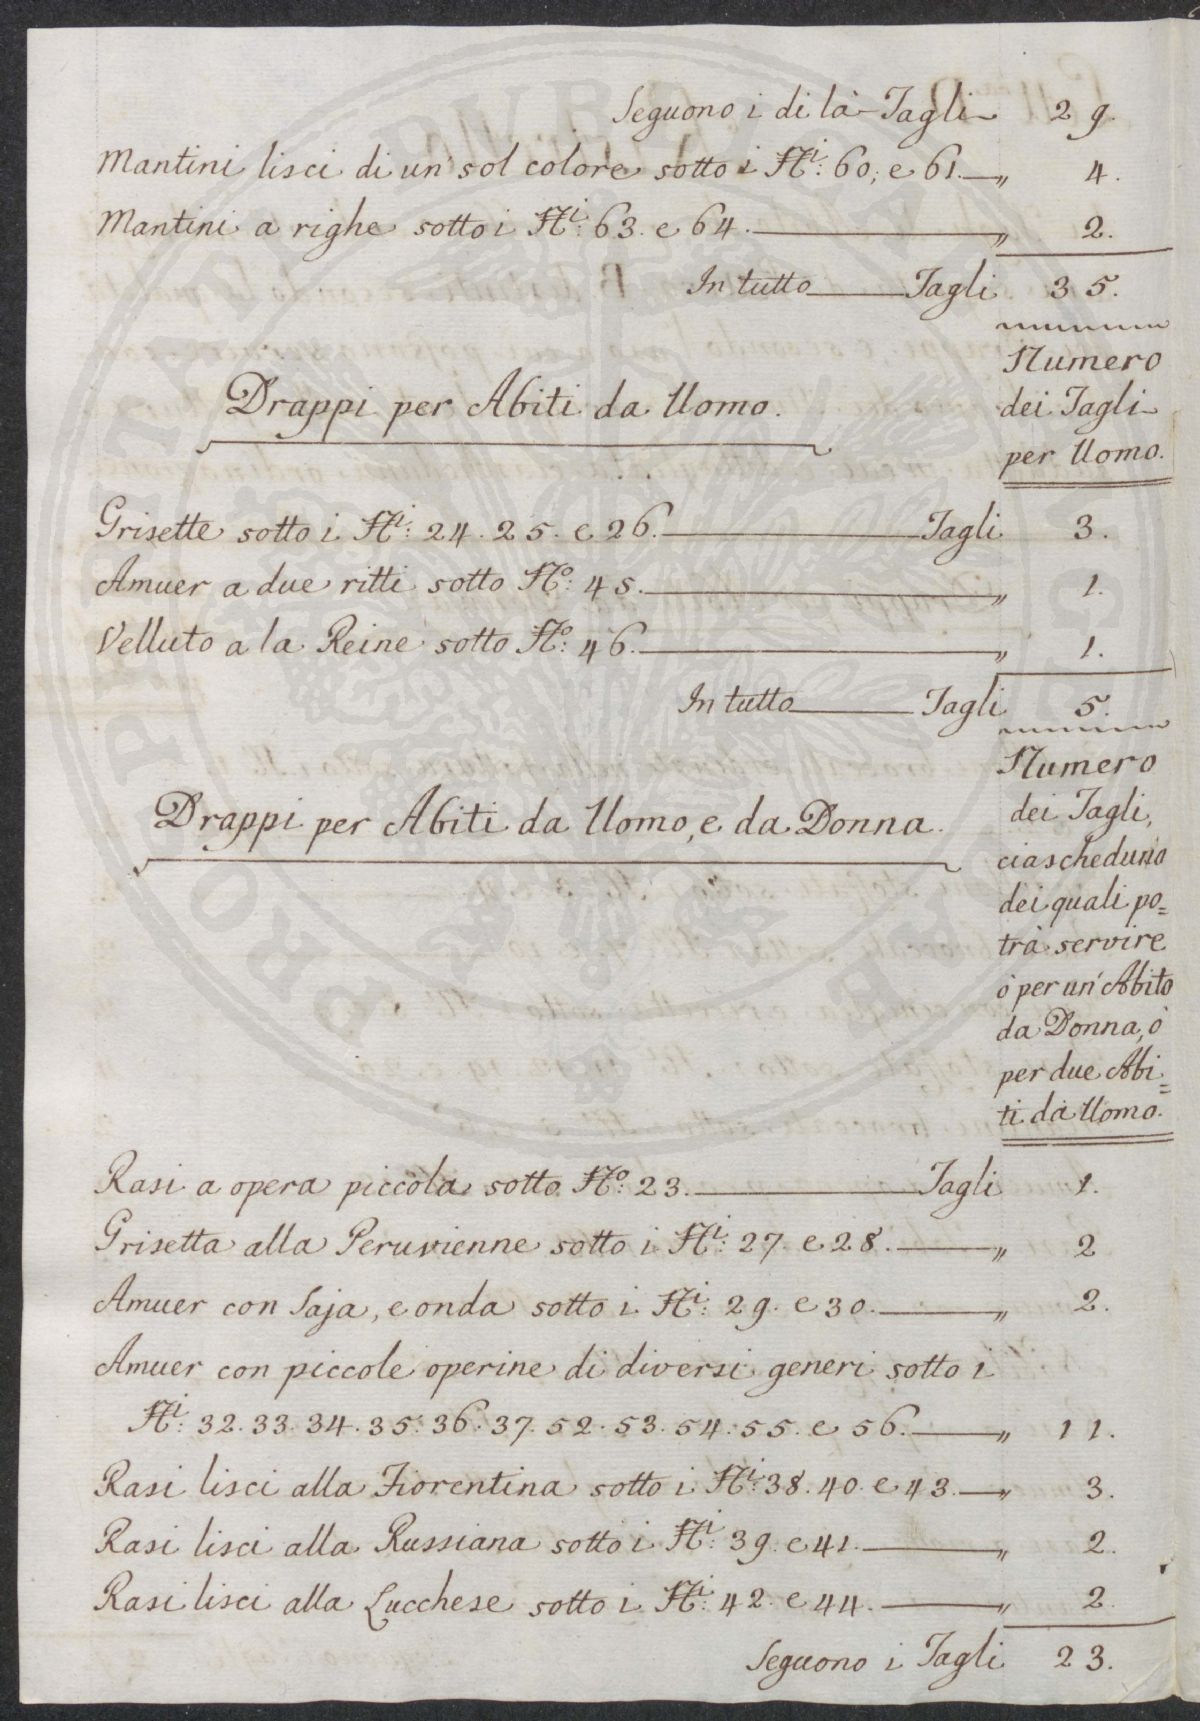 Seguono i di là Tagli 29.
Mantini lisci di un sol colore sotto i Ni: 60, e 61. — „ 4.
Mantini a righe sotto i Ni: 63. e 64. — „ 2.
In tutto — Tagli 35.
Numero
dei Tagli
per Uomo.
Drappi per Abiti da Uomo.
Grisette sotto i Ni: 24. 25. e 26. — Tagli 3.
Amuer a due ritti sotto No: 45. — „ 1.
Velluto a la Reine sotto No: 46. — „ 1.
In tutto — Tagli 5.
Numero
dei Tagli,
ciascheduno
dei quali po=
trà servire
ò per un' Abito
da Donna, ò
per due Abi=
ti da Uomo.
Drappi per Abiti da Uomo, e da Donna.
Rasi a opera piccola sotto No: 23. — Tagli 1.
Grisetta alla Peruvienne sotto i Ni: 27. e 28. — „ 2
Amuer con Saja, e onda sotto i Ni: 29. e 30. — „ 2.
Amuer con piccole operine di diversi generi sotto i
Ni: 32. 33. 34. 35. 36. 37. 52. 53. 54. 55. e 56. — „ 11.
Rasi lisci alla Fiorentina sotto i Ni: 38. 40. e 43. — „ 3.
Rasi lisci alla Russiana sotto i Ni: 39. e 41. — „ 2.
Rasi lisci alla Lucchese sotto i Ni: 42. e 44. — „ 2.
Seguono i Tagli 23.